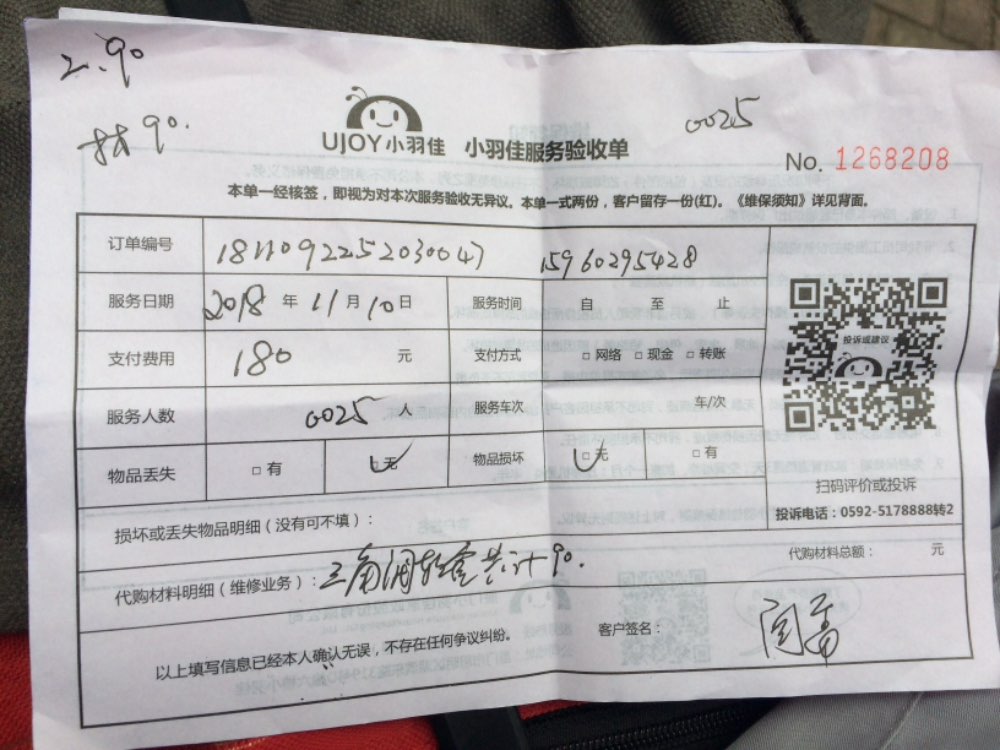 工.90
材90.
0025
UJOY小羽佳 小羽佳服务验收单
No. 1268208
本单一经核签，即视为对本次服务验收无异议。本单一式两份，客户留存一份(红)。《维保须知》详见背面。
订单编号 1811092252030047 15960295428
服务日期 2018 年 11 月 10 日 服务时间 自 至 止
支付费用 180 元 支付方式 □ 网络 □ 现金 □ 转账
投诉或建议
服务人数 0025 人 服务车次 车/次
物品丢失 □ 有 □ 无 物品损坏 □ 无 □ 有
扫码评价或投诉
投诉电话：0592-5178888转2
损坏或丢失物品明细（没有可不填）：
代购材料总额： 元
代购材料明细（维修业务）：三角阀软管共计90.
以上填写信息已经本人确认无误，不存在任何争议纠纷。 客户签名：